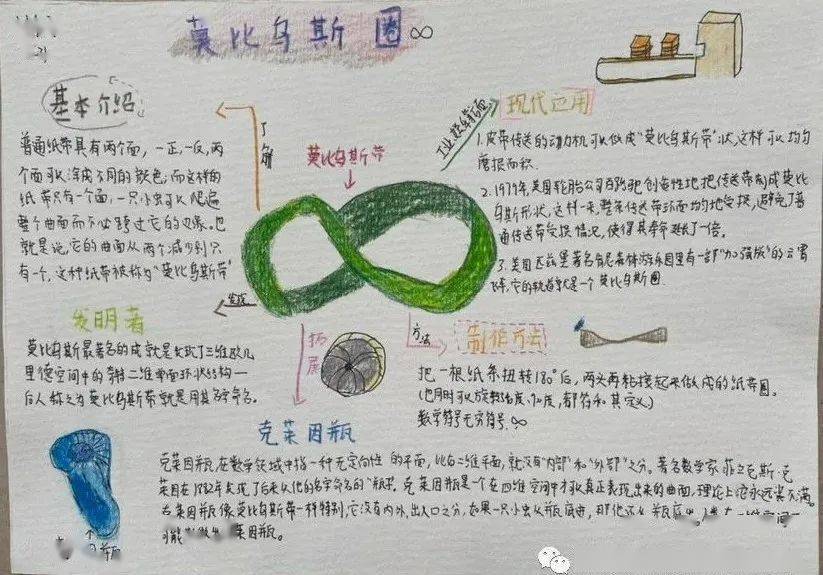 莫比乌斯圈∞
基本介绍
普通纸带具有两个面，一正，一反，两
个面可以涂成不同的颜色；而这样的
纸带只有一个面，一只小虫可以爬遍
整个曲面而不必跨过它的边缘。也
就是说，它的曲面从两个减少到只
有一个，这种纸带被称为“莫比乌斯带”
了解
莫比乌斯带
现代应用
1.皮带传送的动力机可以做成“莫比乌斯带”状，这样可以均匀
磨损面积.
2.1979年，美国轮胎公司百路驰创造性地把传送带制成莫比
乌斯形状，这样一来，整条传送带环面均匀地受损，避免了普
通传送带受损情况，使得其寿命延长了一倍。
3.美国匹兹堡著名肯尼森林游乐园里有一部“加强版”的云霄
飞车，它的轨道就是一个莫比乌斯圈.
发明者
莫比乌斯最著名的成就是发现了三维欧几
里德空间中的奇特二维单面环状结构一
后人称之为莫比乌斯带就是用其名字命名。
拓展
方法
制作方法
把一根纸条扭转180°后，两头再粘接起来做成的纸带圈。
数学符号无穷符号.∞
克莱因瓶
克莱因瓶在数学领域中指一种无定向性的平面，比如二维平面，就没有“内部”和“外部”之分。著名数学家菲立克斯·克
莱因在1882年发现了后来以他的名字命名的“瓶”. 克莱因瓶是一个在四维空间中才可以真正表现出来的曲面，理论上它永远装不满。
克莱因瓶像莫比乌斯带一样特别，它没有内外，出入口之分，如果一只小虫从瓶底曲，那
莱因瓶。